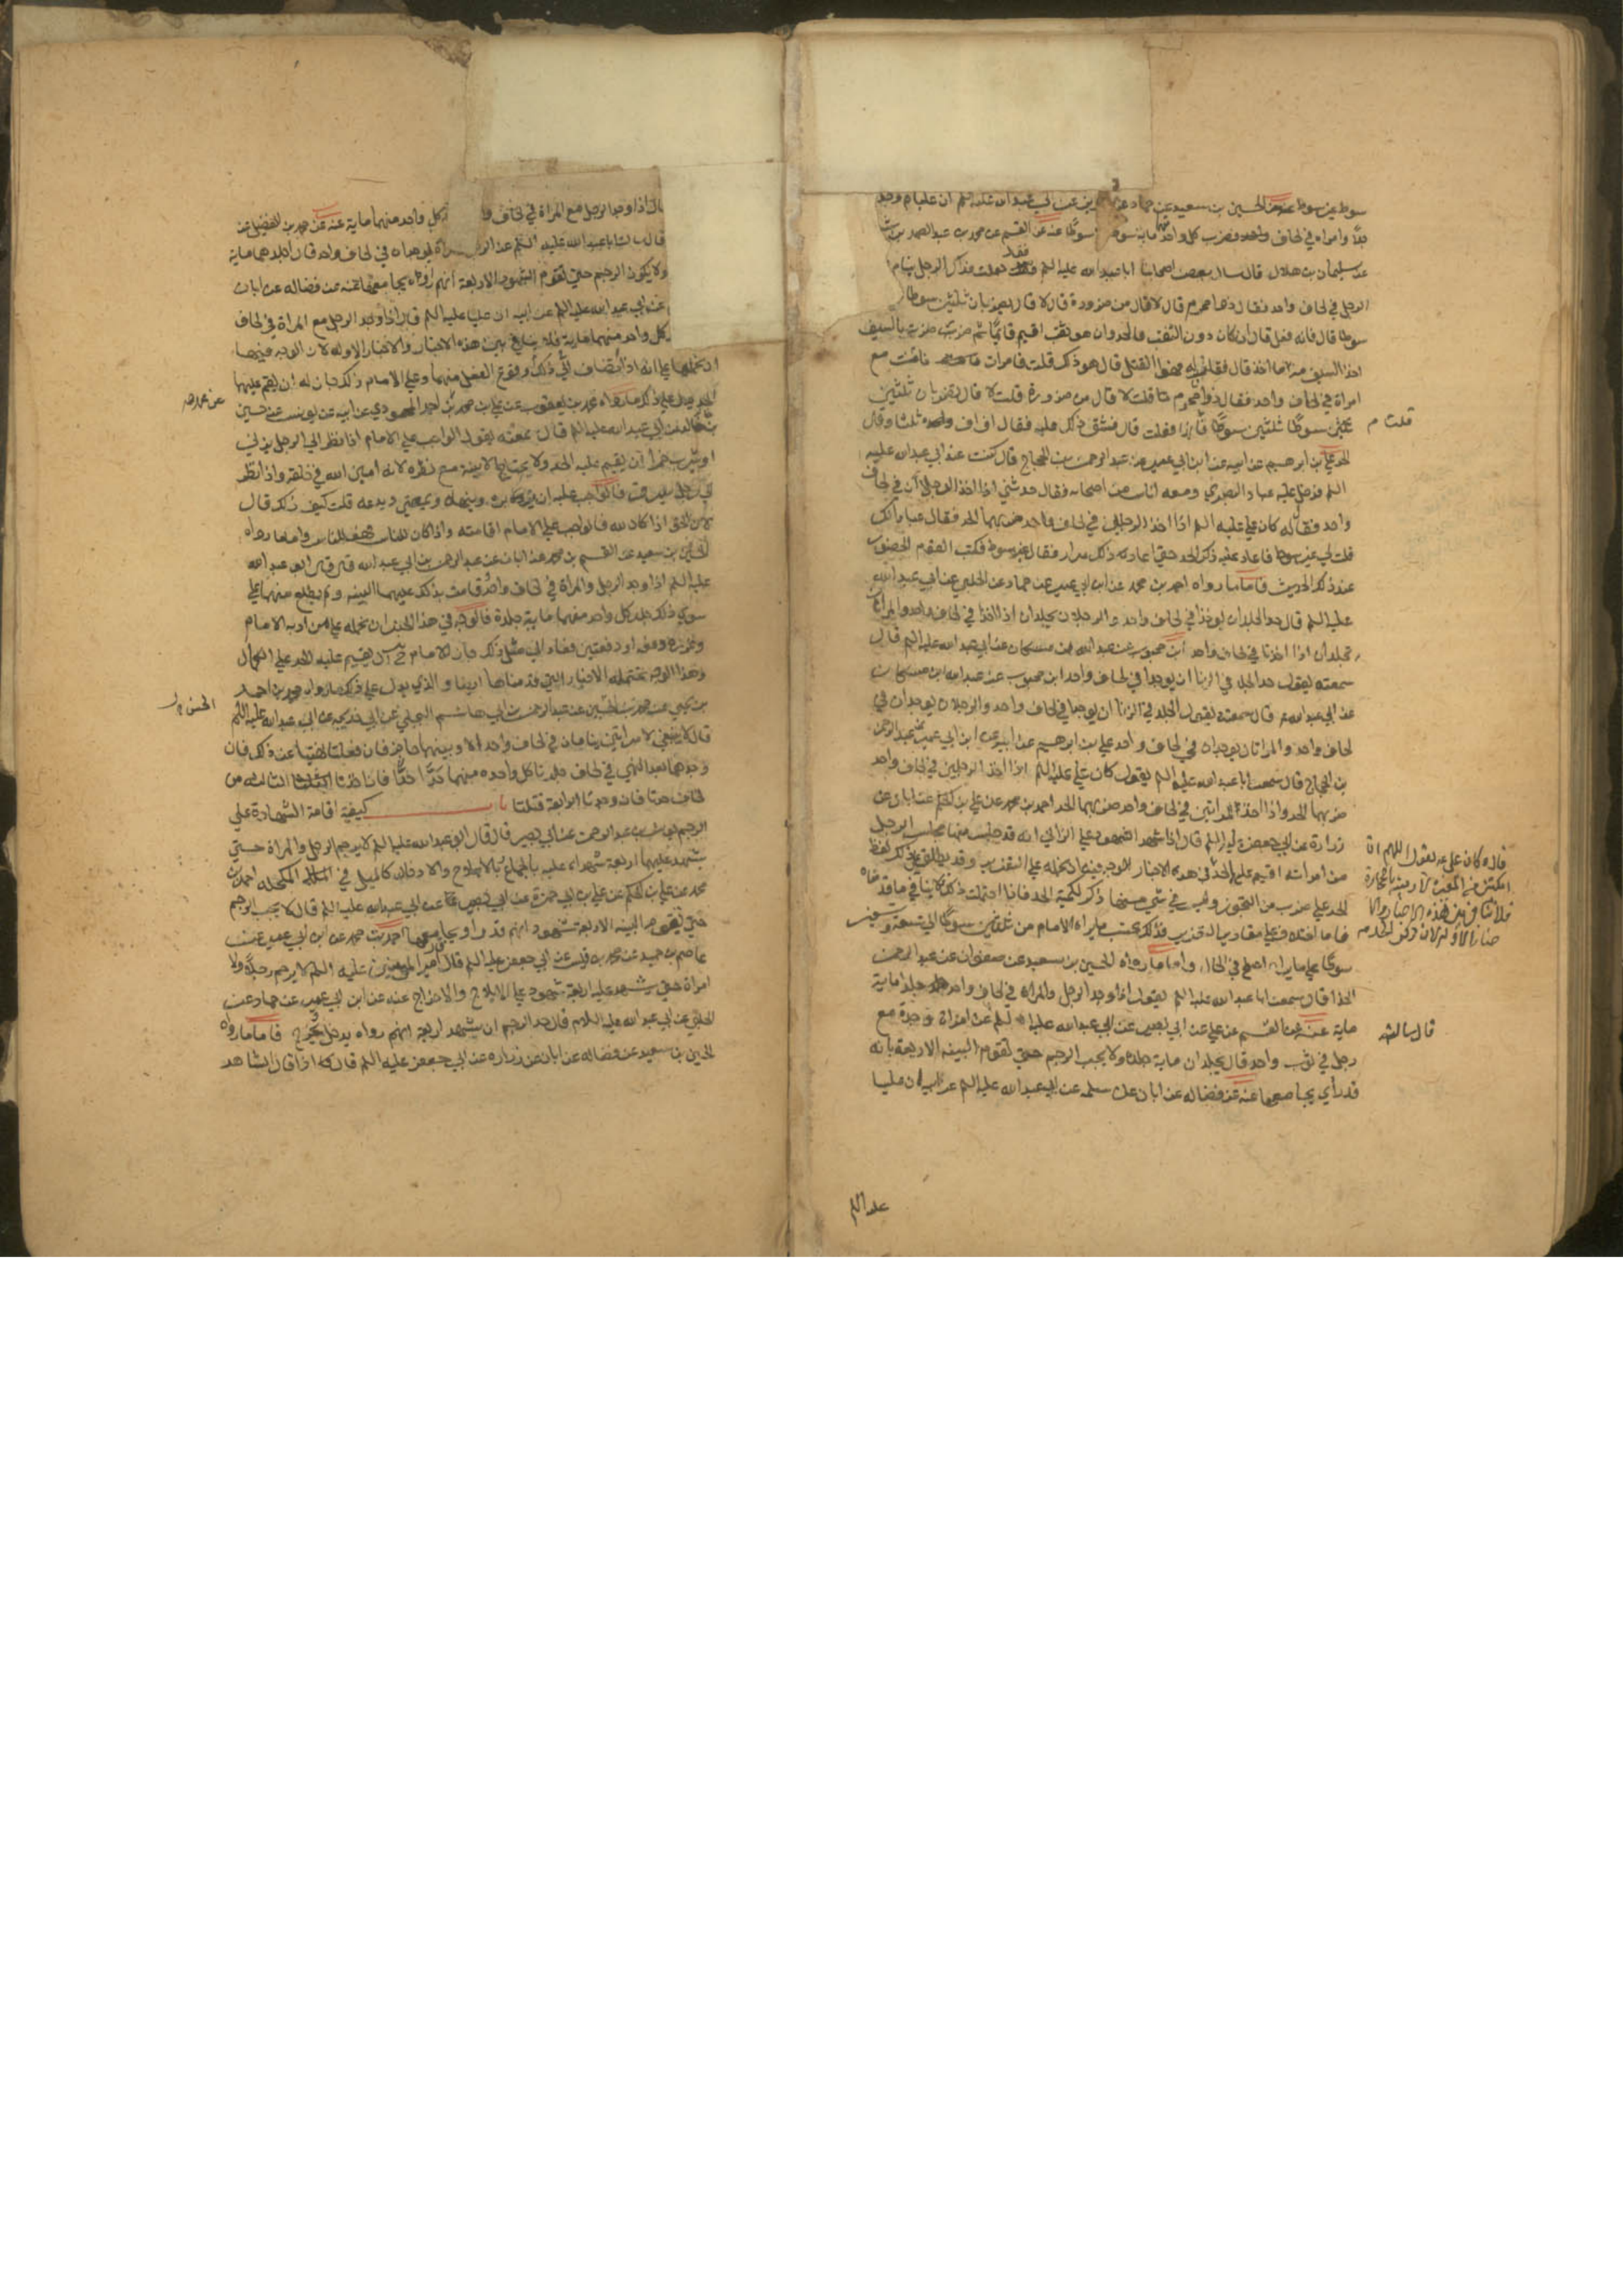 سوط غير سوط عنه عن الحسين بن سعيد عن حماد عن حريز عن ابي عبد الله عليه السلم ان عليا م وجد
رجلا وامراه في لحاف واحد فضرب كل واحد منهما ماية سوط سوطا عنه عن القسم عن محمد بن عبد الصمد بن بشا
عن سليمان بن هلال قال سال بعض اصحابنا ابا عبد الله عليه السلم فقال جعلت فداك الرجل ينام
الرجل في لحاف واحد فقال ذوا محرم قال لا قال من ضرورة قال لا قال يضربان ثلثين سوطا
سوطا قال فانه فعل قال ان كان دون الثقب فالحد وان هو ثقب اقيم قائما ثم ضرب ضربة بالسيف
اخذ السيف منه ما اخذ قال فقلت له فهو القتل قال هو ذاك قلت فامراة نامت مع
امراة في لحاف واحد فقال ذواتا محرم قلت لا قال من ضرورة قلت لا قال يضربان ثلثين
ثلثين سوطا ثلثين سوطا قلت فانها فعلت قال فشق ذلك عليه فقال اف اف اف ثلثا وقال
الحد علي بن ابرهيم عن ابيه عن ابن ابي عمير عن عبد الرحمن بن الحجاج قال كنت عند ابي عبد الله عليه
السلم فدخل عليه عباد البصري ومعه اناس من اصحابه فقال حدثني اذا اخذ الرجلان في لحاف
واحد فقال له كان علي عليه السلم اذا اخذ الرجلين في لحاف واحد ضربهما الحد فقال عباد انك
قلت لي غير سوط فاعاد عليه ذكر الحد حتى اعاد عليه ذلك مرارا فقال غير سوط فكتب القوم الحضور
عند ذلك الحديث فاما ما رواه احمد بن محمد عن ابن ابي عمير عن حماد عن الحلبي عن ابي عبد الله
عليه السلم قال حد الجلد ان يوخذا في لحاف واحد والرجلان يجلدان اذا اخذا في لحاف واحد والمراتان
تجلدان اذا اخذتا في لحاف واحد ابن محبوب عن عبد الله بن مسكان عن ابي عبد الله عليه السلم قال
سمعته يقول حد الجلد في الزنا ان يوجدا في لحاف واحد ابن محبوب عن عبد الله بن مسكان
عن ابي عبد الله م قال سمعته يقول الجلد في الزنا ان يوجدا في لحاف واحد والرجلان يوجدان في
لحاف واحد والمراتان توجدان في لحاف واحد علي بن ابرهيم عن ابيه عن ابن ابي عمير عن عبد الرحمن
بن الحجاج قال سمعت ابا عبد الله عليه السلم يقول كان علي عليه السلم اذا اخذ الرجلين في لحاف واحد
ضربهما الحد واذا اخذ المراتين في لحاف واحد ضربهما الحد احمد بن محمد عن علي بن الحكم عن ابان عن
زرارة عن ابي جعفر عليه السلم قال اذا شهد الشهود على الزاني انه قد جلس منها مجلس الرجل
من امراته اقيم عليه الحد في هذه الاخبار فالوجه فيها ان نحمله على التعزير وقد يطلق على ذلك لفظ
الحد على ضرب من التجوز وليس في شي منها ذكر لكمية الحد فاذا احتملت ذلك لا ينافي ما قدمناه
فاما اختلاف مقادير التعزير فذلك بحسب ما يراه الامام من ثلاثين سوطا الى تسعة وتسعين
سوطا على ما يراه اصلح في الحال واما ما رواه الحسين بن سعيد عن صفوان عن عبد الرحمن
الحذا قال سمعت ابا عبد الله عليه السلم يقول اذا وجد الرجل والمراه في لحاف واحد جلدا ماية
ماية عنه عن القسم عن علي عن ابي بصير عن ابي عبد الله عليه السلم عن امراة وجدت مع
رجل في ثوب واحد قال يجلدان ماية جلده ولا يجب الرجم حتى تقوم البينه الاربعة بانه
قد راي يجامعها عنه عن فضاله عن ابان عن سلمه عن ابي عبد الله عليه السلم عن ابيه ان عليا
قلت م
قال وكان علي عه يقول اللهم ان
امكنتني من المغيرة لارمينه بالحجارة
قال سالته
عليه السلم
قال اذا وجد الرجل مع المراة في لحاف كل واحد منهما ماية عنه عن محمد بن الفضيل عن
قال سالت ابا عبد الله عليه السلم عن الرجل والمراة يوجدان في لحاف واحد قال اجلدهما ماية
ولا يكون الرجم حتى تقوم الشهود الاربعة انهم راوه يجامعها عنه عن فضاله عن ابان
عن ابي عبد الله عليه السلم عن ابيه ان عليا عليه السلم قال اذا وجد الرجل مع المراة في لحاف
كل واحد منهما ماية فلا ينافي هذه الاخبار والاخبار الاوله لان الوجه فيها
ان نحملها على انه اذا انضاف الى ذلك وقوع الفعل منهما وعلم الامام ذلك جاز له ان يقيم عليهما
الحد يدل على ذلك ما رواه محمد بن يعقوب عن علي بن محمد بن احمد المحمودي عن ابيه عن يونس عن حسين
بن خالد عن ابي عبد الله عليه السلم قال سمعته يقول الواجب على الامام اذا نظر الى الرجل يزني
او يشرب خمرا ان يقيم عليه الحد ولا يحتاج الى بينة مع نظره لانه امين الله في خلقه واذا نظر
الى رجل يسرق فالواجب عليه ان يزبره وينهاه ويمضي ويدعه قلت كيف ذلك قال
لان الحق اذا كان لله فالواجب على الامام اقامته واذا كان للناس فهو للناس واما ما رواه
الحسين بن سعيد عن القسم بن محمد عن ابان عن عبد الرحمن بن ابي عبد الله قال قال ابو عبد الله
عليه السلم اذا وجد الرجل والمراة في لحاف واحد وقامت بذلك عليهما البينه ولم يطلع منهما على
سوى ذلك جلد كل واحد منهما ماية جلدة فالوجه في هذا الخبر ان نحمله على من ادبه الامام
وعزره دفعة او دفعتين فعاد الى مثل ذلك جاز للامام ح ان يقيم عليه الحد على الكمال
وهذا الوجه تحتمله الاخبار التي قدمناها ايضا والذي يدل على ذلك ما رواه محمد بن احمد
بن يحيى عن محمد بن الحسين عن عبد الرحمن بن ابي هاشم البجلي عن ابي خديجه عن ابي عبد الله عليه السلم
قال لا ينبغي لامراتين تنامان في لحاف واحد الا وبينهما حاجز فان فعلتا نهيتا عن ذلك فان
وجدهما بعد النهي في لحاف جلدتا كل واحده منهما حدا حدا فان اخذتا الثالثه في
لحاف حدتا فان وجدتا الرابعة قتلتا باب كيفية اقامة الشهادة على
الرجم يونس بن عبد الرحمن عن ابي بصير قال قال ابو عبد الله عليه السلم لا يرجم الرجل والمراة حتى
يشهد عليهما اربعة شهداء عليه بالجماع بالايلاج والادخال كالميل في المكحله احمد بن
محمد عن علي بن الحكم عن علي بن ابي حمزة عن ابي بصير عن ابي عبد الله عليه السلم قال لا يجب الرجم
حتى تقوم البينه الاربعة شهود انهم قد راوه يجامعها احمد بن محمد عن ابن ابي عمير عن
عاصم بن حميد عن محمد بن قيس عن ابي جعفر عليه السلم قال قال امير المومنين عليه السلم لا يرجم رجل ولا
امراة حتى يشهد عليه اربعة شهود على الايلاج والاخراج عنه عن ابن ابي عمير عن حماد عن
الحلبي عن ابي عبد الله عليه السلام قال حد الرجم ان يشهد اربعة انهم راوه يدخل ويخرج فاما ما رواه
الحسين بن سعيد عن فضاله عن ابان عن زراره عن ابي جعفر عليه السلم قال له اذا قال الشاهد